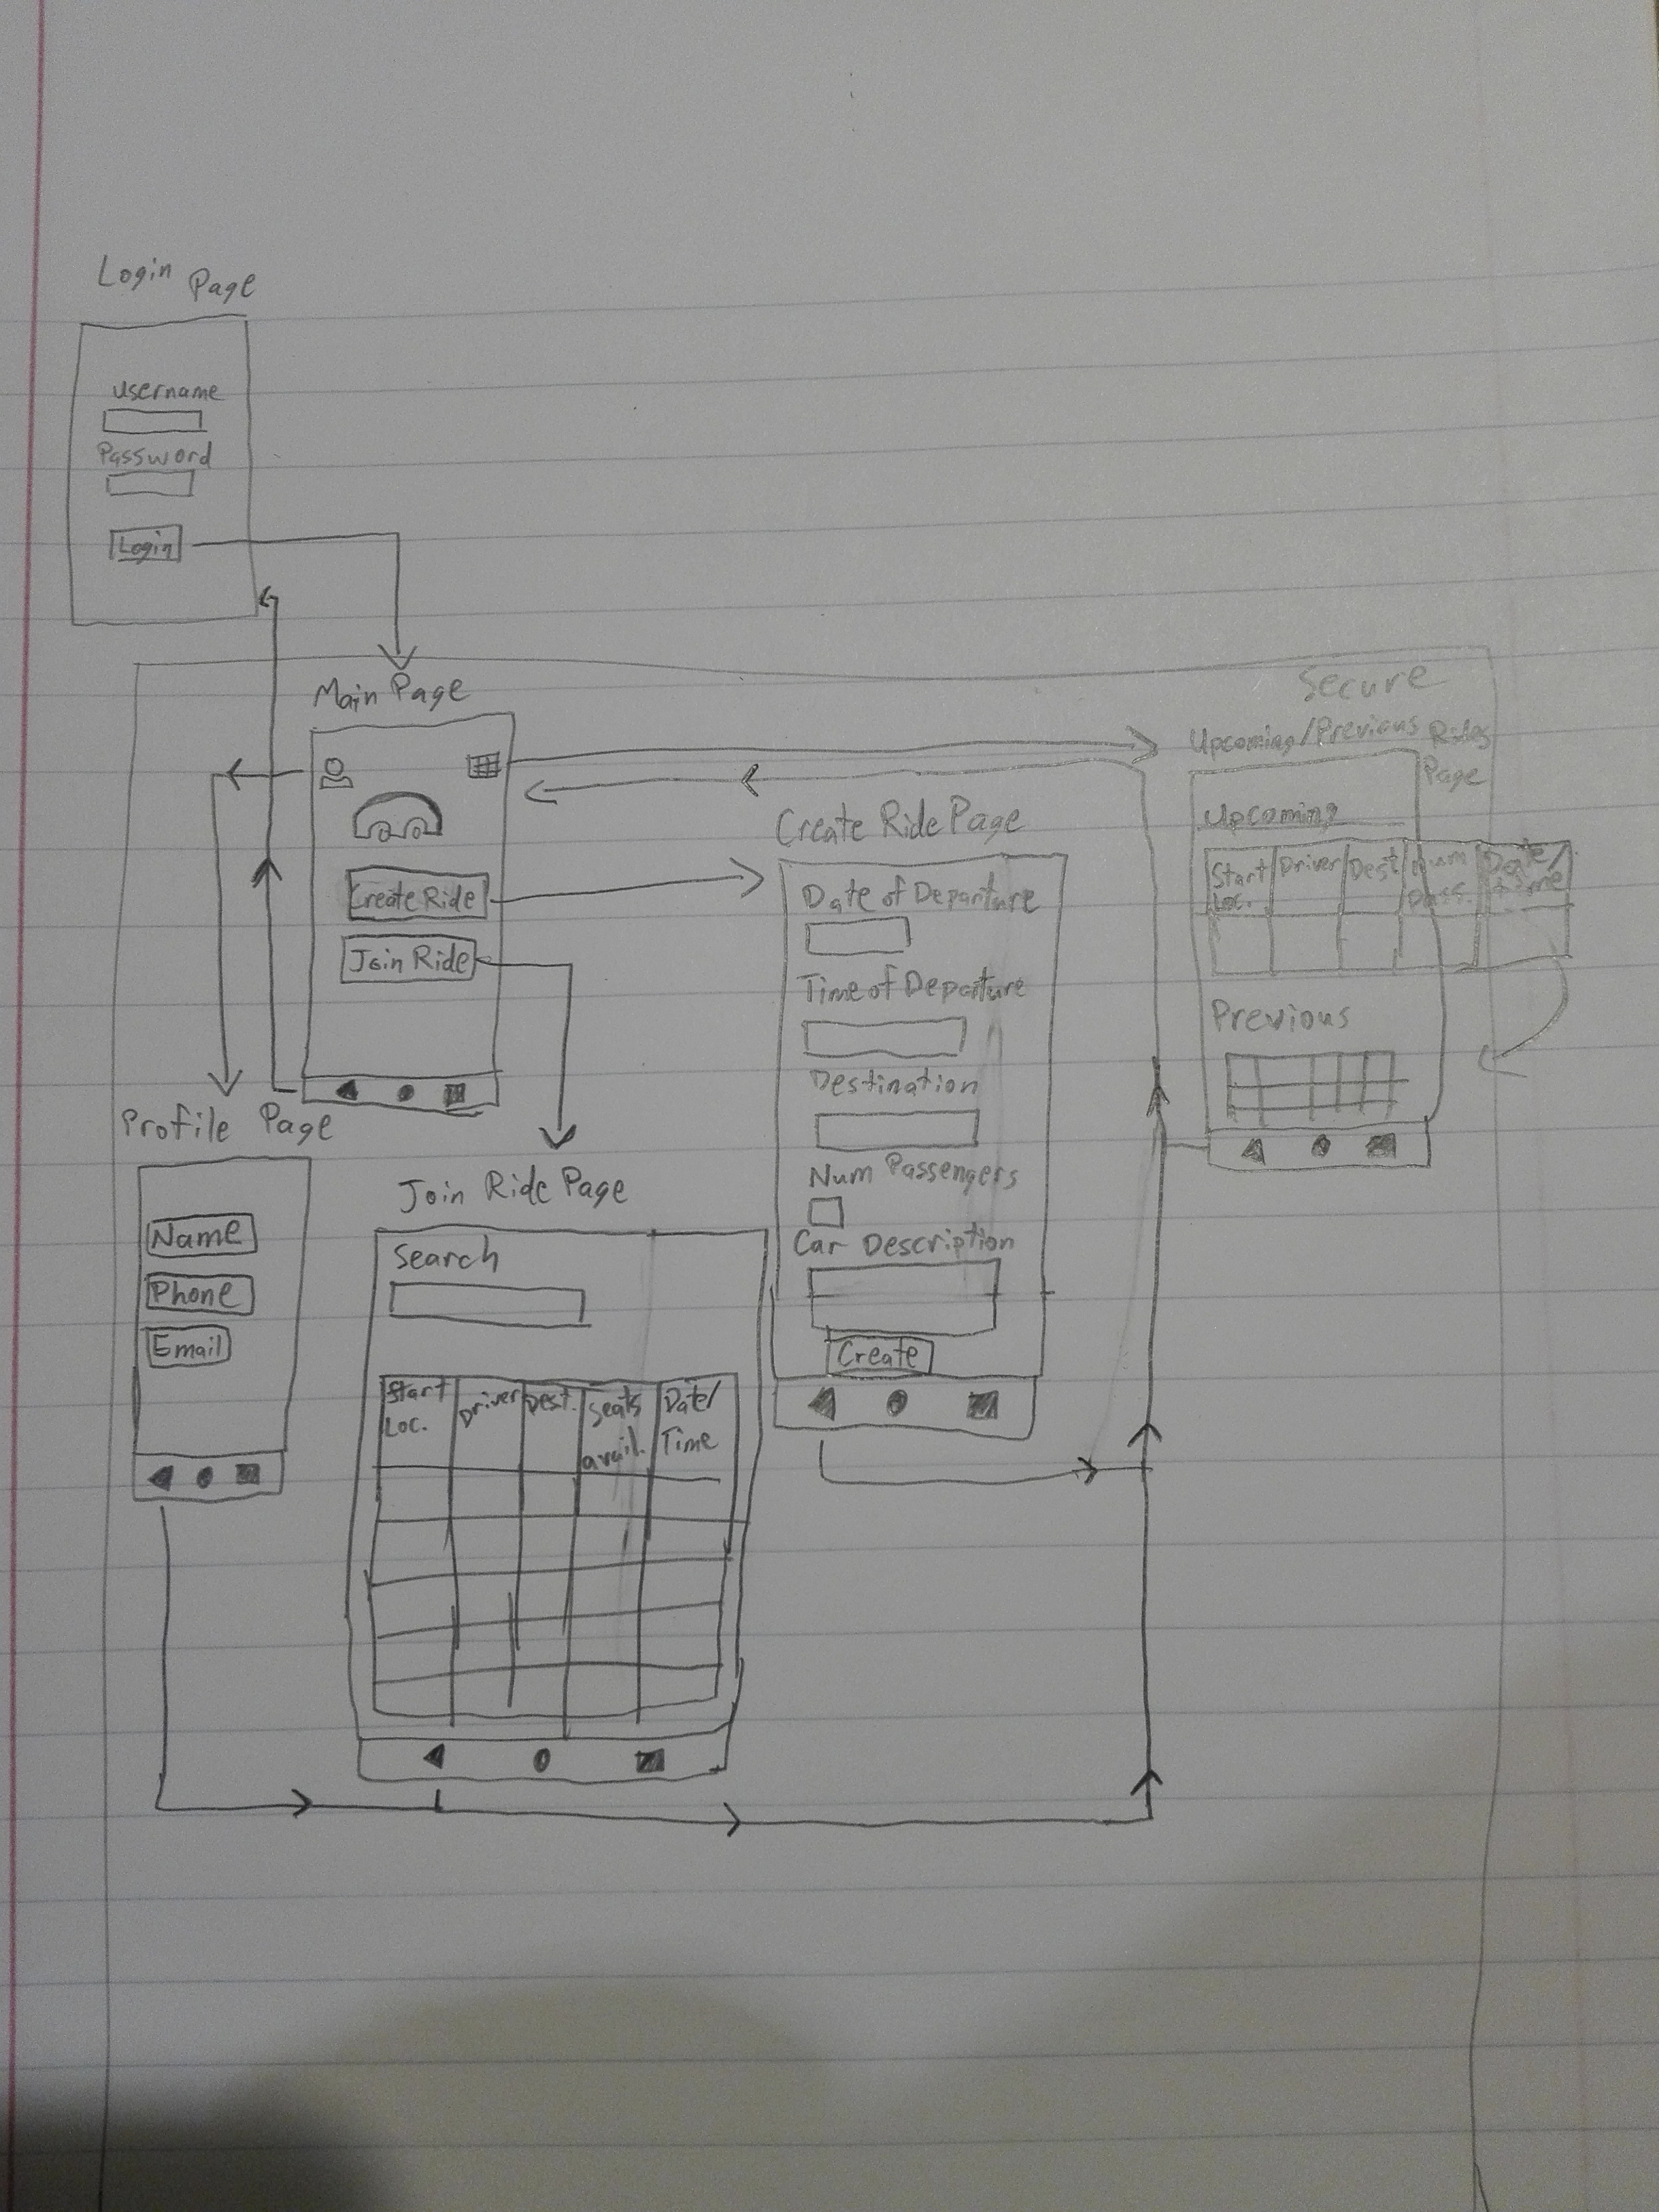 Login Page
username
Password
Login
Main Page
Create Ride
Join Ride
Secure
Upcoming/Previous Rides
Page
Upcoming
Start
Loc.
Driver
Dest
Num
Pass.
Date/
time
Previous
Create Ride Page
Date of Departure
Time of Departure
Destination
Num Passengers
Car Description
Create
Profile Page
Name
Phone
Email
Join Ride Page
Search
Start
Loc.
Driver
Dest.
Seats
avail.
Date/
Time